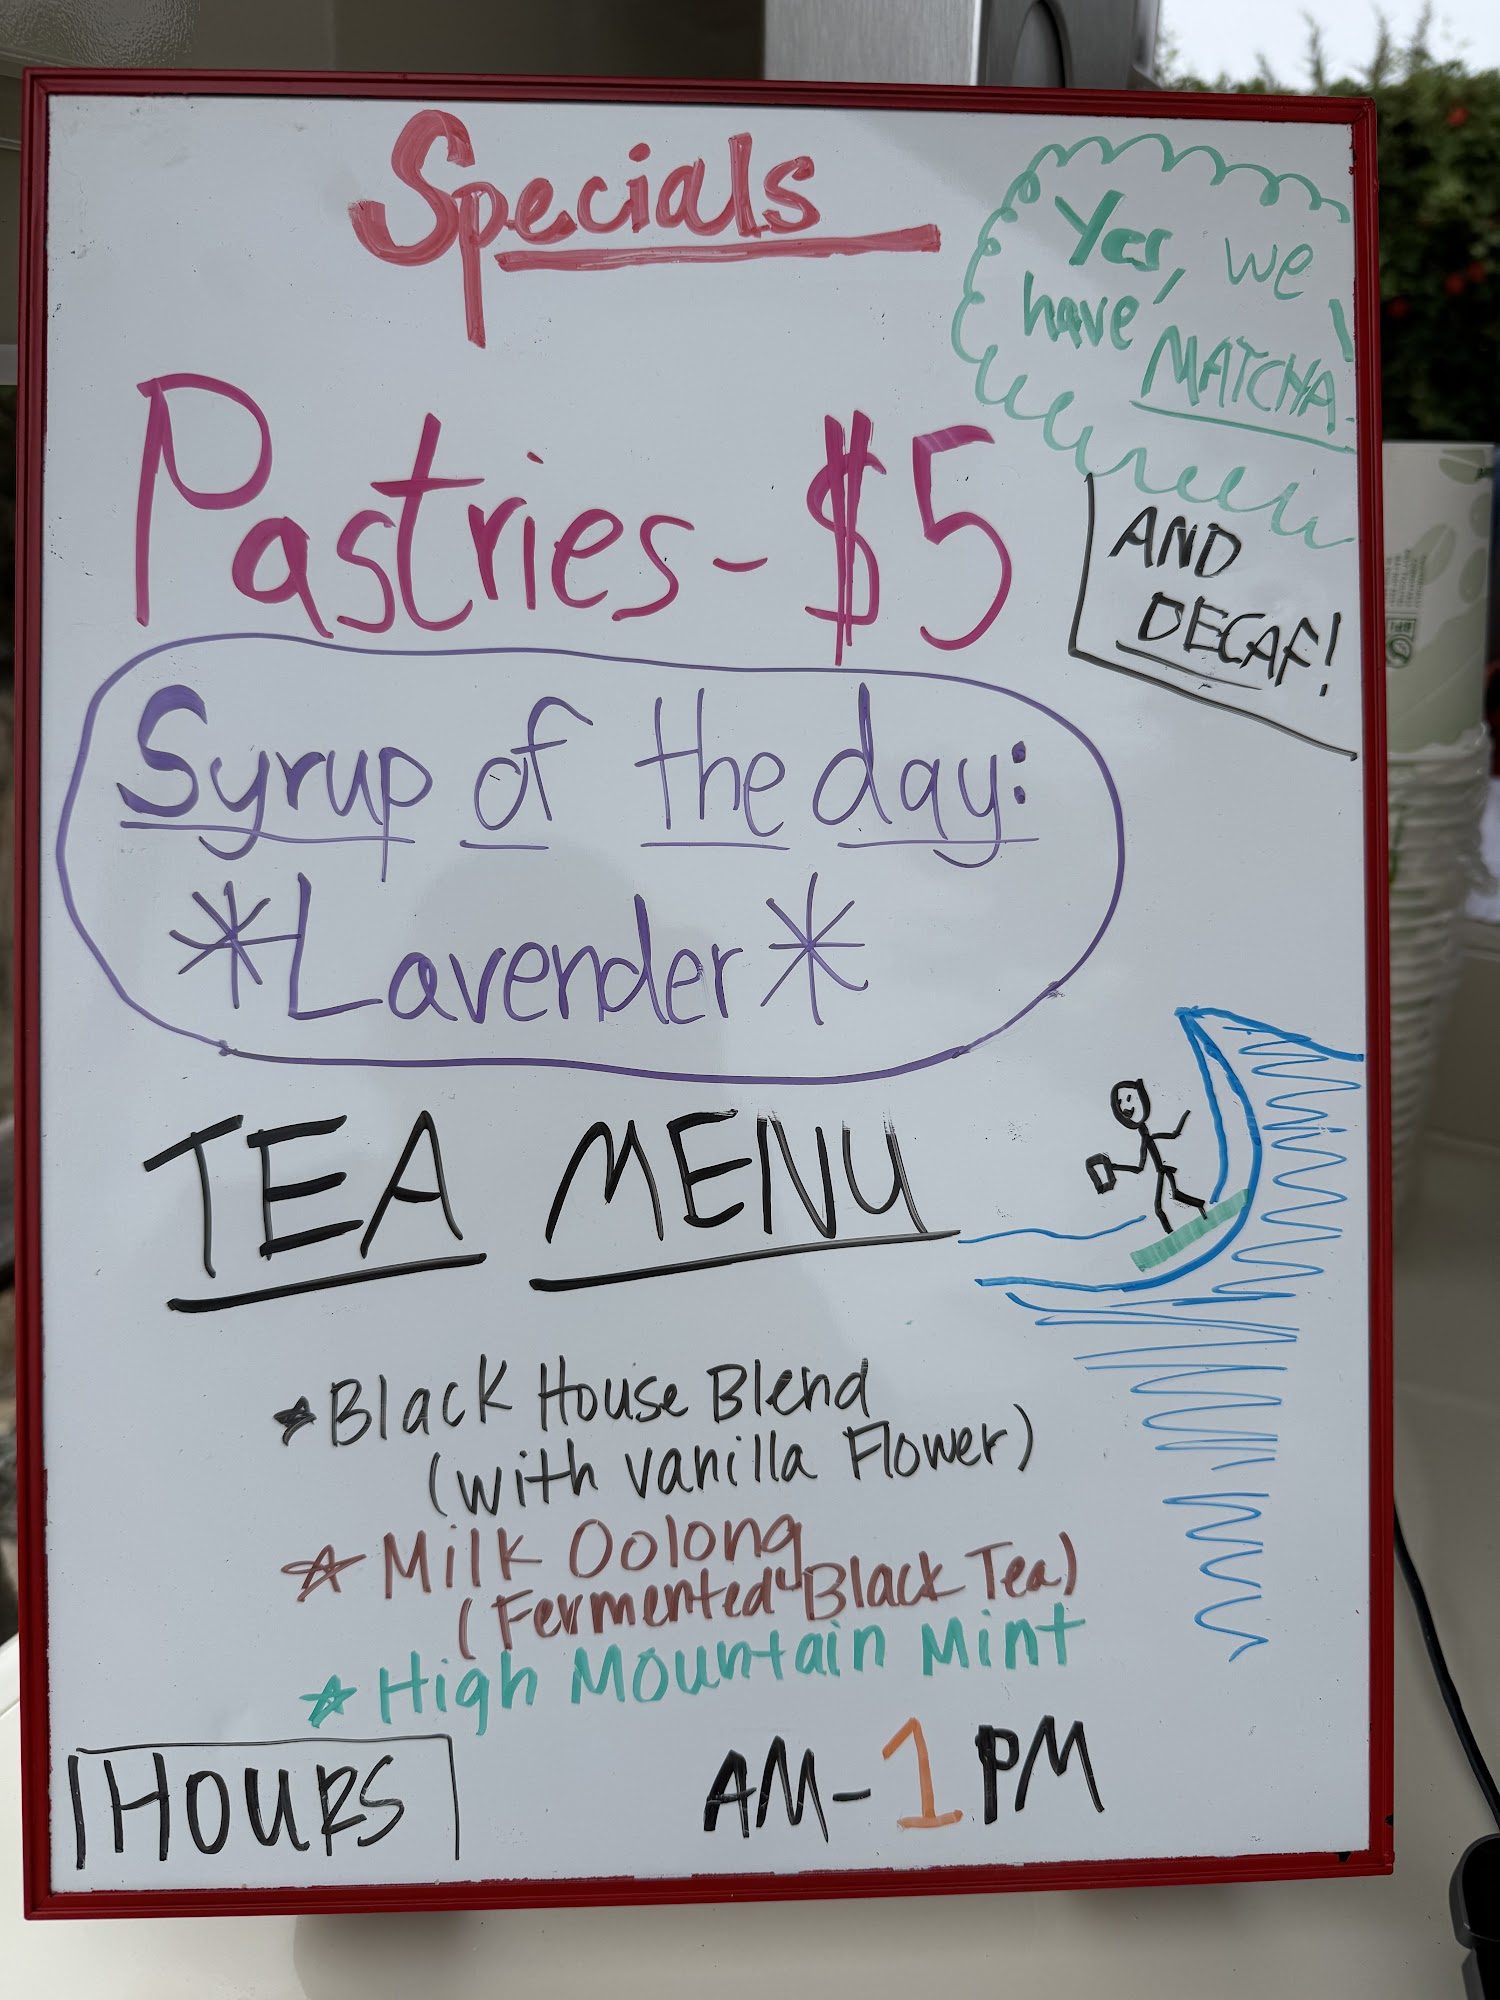 Specials
Yes, we
have
MATCHA
AND
DECAF!
Pastries - $5
Syrup of the day:
*Lavender*
TEA MENU
Black House Blend
(with vanilla Flower)
Milk Oolong
(Fermented Black Tea)
High Mountain Mint
HOURS AM-1PM